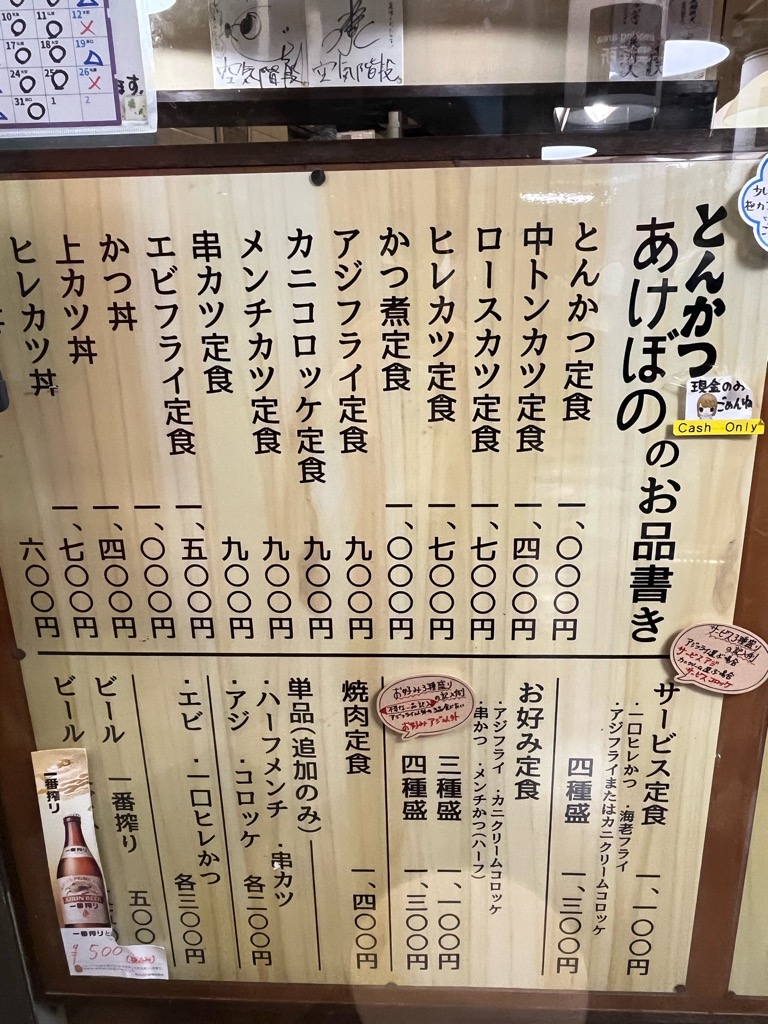 とんかつ
あけぼののお品書き
現金のみ
ごめんね
Cash Only
とんかつ定食 一、〇〇〇円
中トンカツ定食 一、四〇〇円
ロースカツ定食 一、七〇〇円
ヒレカツ定食 一、七〇〇円
かつ煮定食 一、〇〇〇円
アジフライ定食 九〇〇円
カニコロッケ定食 九〇〇円
メンチカツ定食 九〇〇円
串カツ定食 九〇〇円
エビフライ定食 一、五〇〇円
かつ丼 一、〇〇〇円
上カツ丼 一、四〇〇円
ヒレカツ丼 一、七〇〇円
六〇〇円
サービス定食 一、一〇〇円
・一口ヒレかつ ・海老フライ
・アジフライまたはカニクリームコロッケ
四種盛 一、三〇〇円
お好み定食
・アジフライ ・カニクリームコロッケ
・串かつ ・メンチかつ(ハーフ)
三種盛 一、一〇〇円
四種盛 一、三〇〇円
焼肉定食 一、四〇〇円
単品(追加のみ)
・ハーフメンチ ・串カツ
・アジ ・コロッケ 各二〇〇円
・エビ ・一口ヒレかつ 各三〇〇円
ビール 一番搾り 五〇〇
ビール
一番搾り
KIRIN BEER
一番搾り
500
サービス3種盛り
サービスアジ
サービスコロッケ
お好み3種盛り
お好みアジ以外
空気階段
空気階段
10 11 12
17 18 19
24 25 26
31 1 2